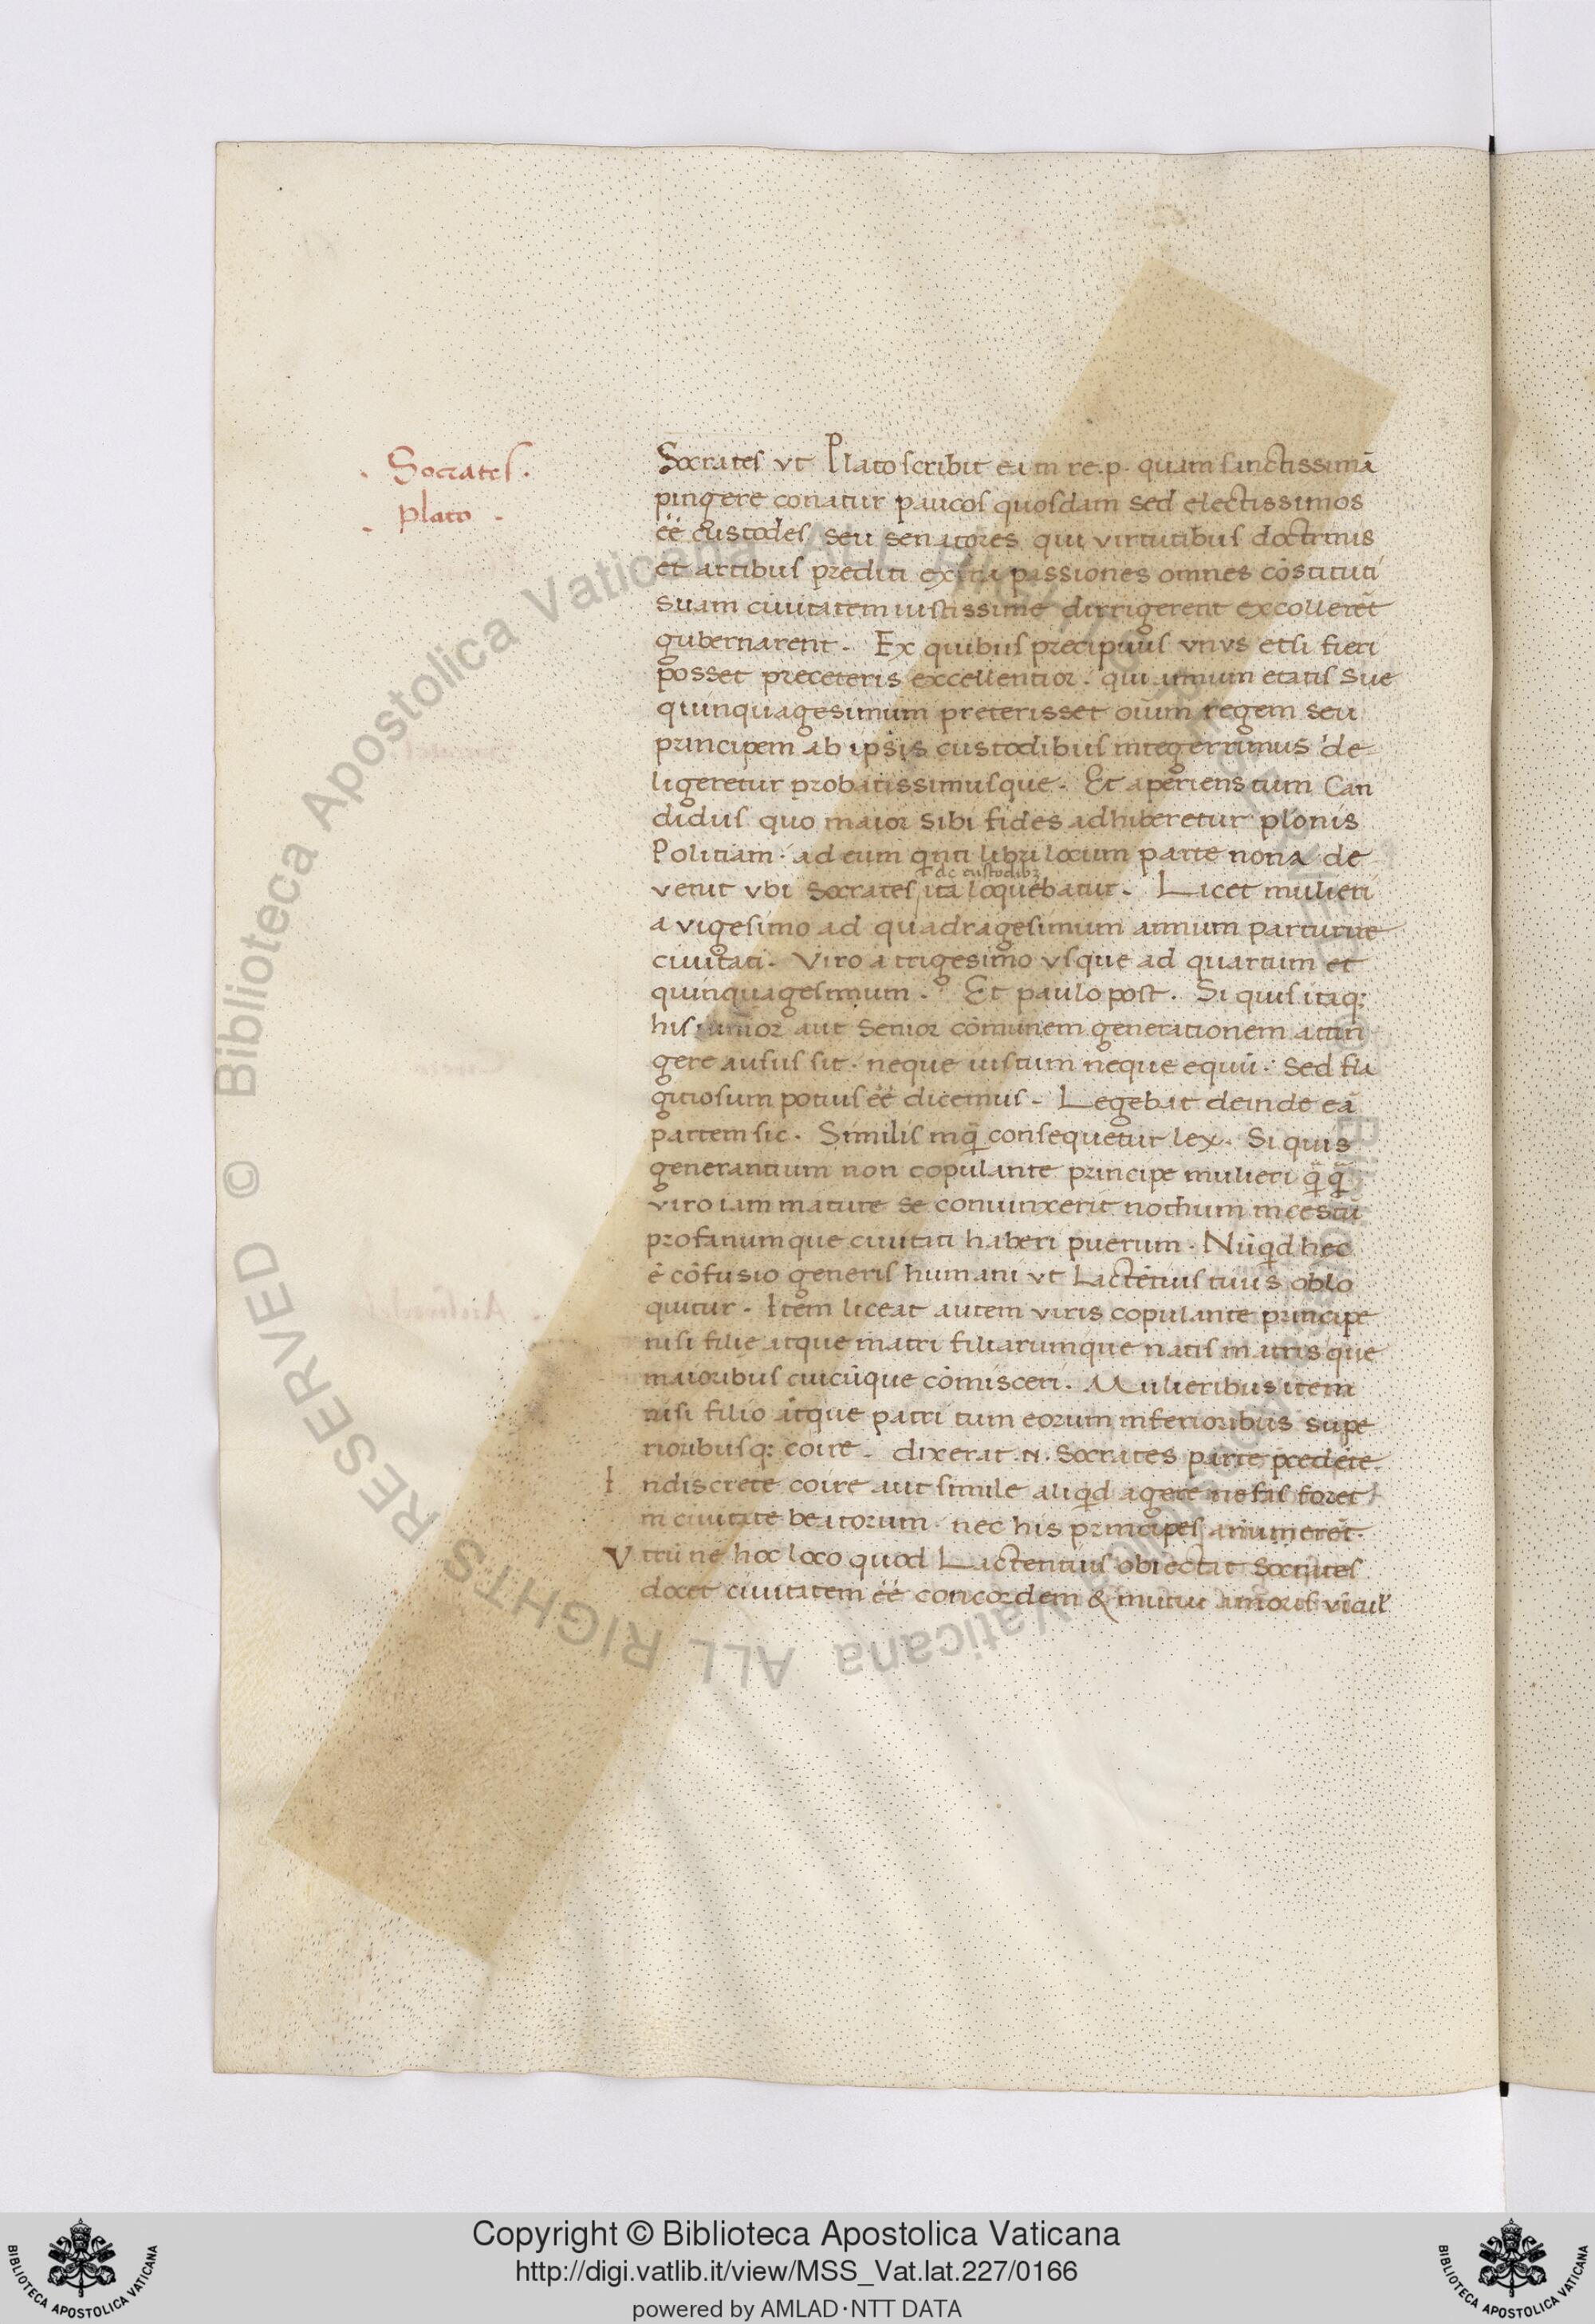 Socrates.
Plato
Socrates vt Plato scribit eam re.p. quam sanctissimā
pingere conatur paucos quosdam sed electissimos
eē custodes seu senatores qui virtutibus doctrinis
et artibus prediti extra passiones omnes cōstituti
suam ciuitatem iustissime dirrigerent excollerēt
gubernarent. Ex quibus precipuus vnus etsi fieri
posset preceteris excellentior. qui annum etatis sue
quinquagesimum preterisset oīum regem seu
principem ab ipsis custodibus integerrimus de
ligeretur probatissimusque. Et aperiens tum Can
didus quo maior sibi fides adhiberetur plonis
Politiam. ad eum qnti libri locum parte nona de
de custodibꝫ
venit vbi Socrates ita loquebatur. Licet mulieri
a vigesimo ad quadragesimum annum parturire
ciuitati. Viro a trigesimo vsque ad quartum et
quinquagesimum. Et paulo post. Si quis itaq:
his iunior aut senior cōmunem generationem attin
gere ausus sit. neque iustum neque equū. Sed fla
gitiosum potius eē dicemus. Legebat deinde eā
partem sic. Similis inq̄ consequetur lex. Si quis
generantium non copulante principe mulieri q̄ q̄
viro iam mature se conuinxerit nothum incestū
profanumque ciuitati haberi puerum. Nūqd hec
ē cōfusio generis humani vt Lactētius tuus oblo
quitur. Item liceat autem viris copulante principe
nisi filie atque matri filiarumque natis matrisque
maioribus cuicūque cōmisceri. Mulieribus item
nisi filio atque patri tum eorum inferioribus supe
rioribusq: coire. dixerat .N. Socrates parte precedēte.
Indiscrete coire aut simile aliqd agere nefas foret
in ciuitate beatorum. nec his principes annumerēt.
Vtrū ne hoc loco quod Lactentius obiectat Socrates
docet ciuitatem eē concordem & mutui amoris
Copyright © Biblioteca Apostolica Vaticana
http://digi.vatlib.it/view/MSS_Vat.lat.227/0166
powered by AMLAD·NTT DATA
BIBLIOTECA APOSTOLICA VATICANA
BIBLIOTECA APOSTOLICA VATICANA